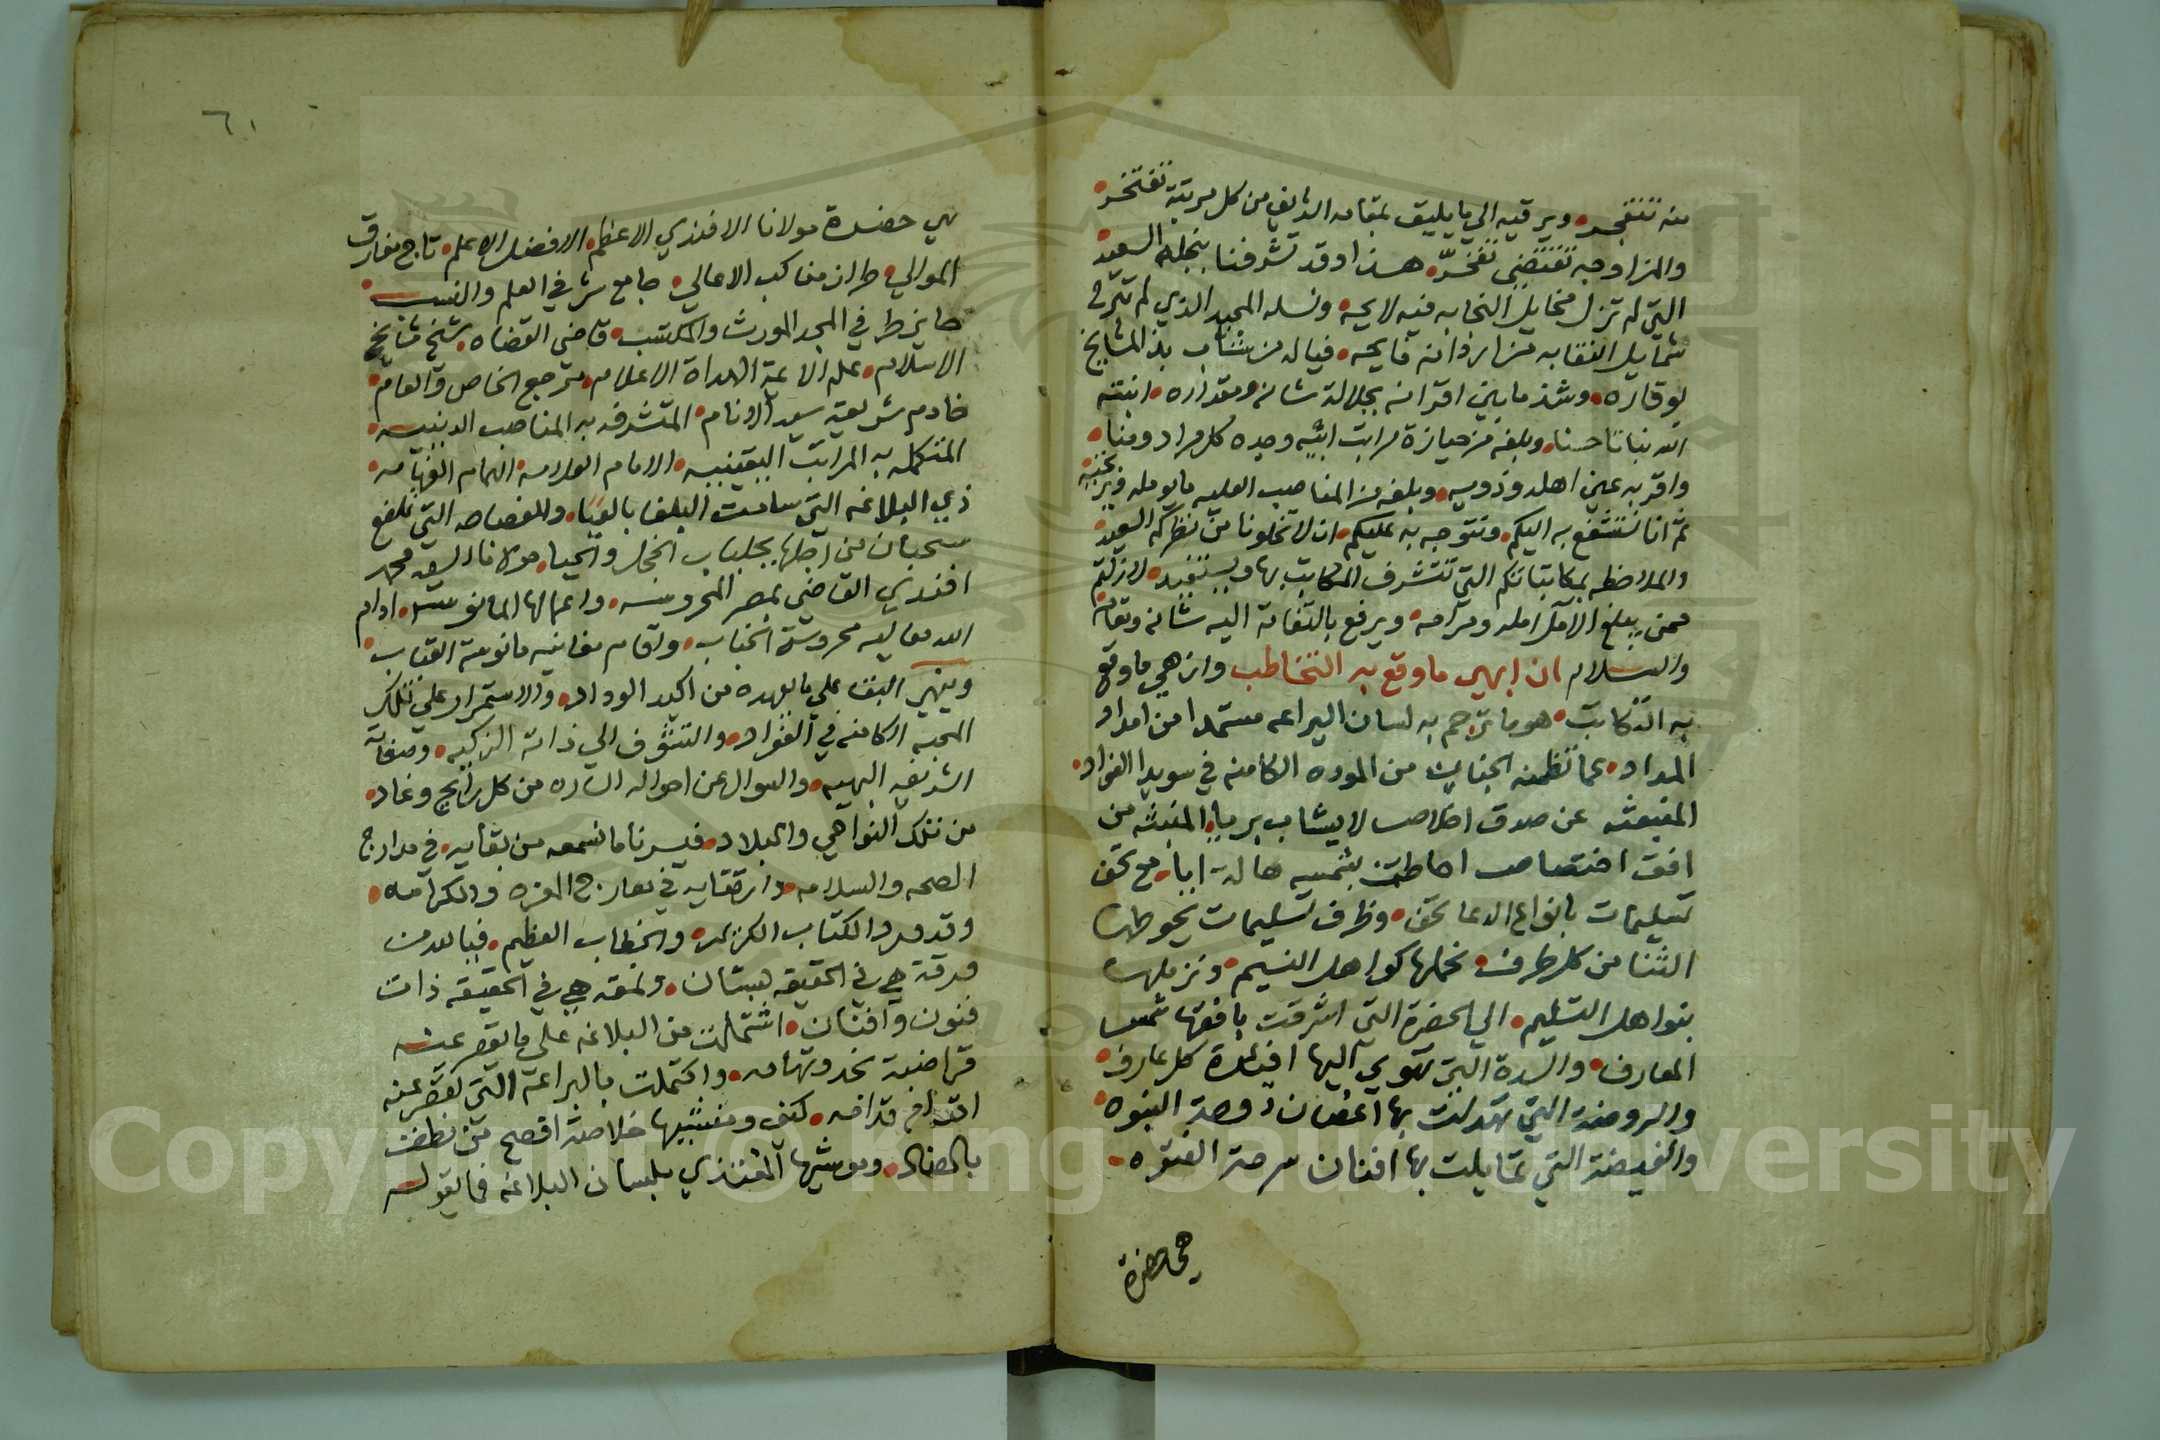 منه تنفجر ويرقيه الي ما يليق بمقامه الشريف من كل مرتبة تفتخر
والمزاوجه تقتضي تفخر هذا وقد تشرفنا بنجله السعيد
التي لم تزل مخايل النجابه فيه لايحه ونسله المجيد الذي لم تبرح
شمايل النقابه من اردانه فايحه فياله من شاب بذ المشايخ
بوقاره وشذ ما بين اقرانه بجلالة شانه ومقداره انبته
الله نباتا حسنا وبلغه من حيازة مراتب ابيه وجده كل مراد ومنا
واقر به عين اهله وذويه وبلغه من المناصب العليه ما يومله ويرتجيه
ثم انا نستشفع به اليكم ونتوجه به عليكم ان لا تخلونا من نظركم السعيد
والملاحظه بمكاتباتكم التي تتشرف المكاتب بها ويستفيد لازلتم
ممن يبلغ الآمل امله ومرامه ويرفع بالتفاته اليه شانه ومقامه
والسلام ان ابهي ما وقع به التخاطب وازهي ما وقع
به التكاتب هو ما ترجم به لسان اليراعه مستمدا من امداد
المداد عما تظمنه الجنان من الموده الكامنه في سويدا الفواد
المنبعثه عن صدق اخلاص لا يشاب بريا المنبثه من
افق اختصاص احاطت بشمسه هالة ابا مع تحف
تسليمات بانواع الدعا تحف وظرف تسليمات يحوطها
الثنا من كل طرف نحملها كواهل النسيم ونزملها
بنواهل التسليم الي الحضرة التي اشرقت بافقها شمس
المعارف والسدة التي تهوي اليها افئدة كل عارف
والروضة التي تهدلت بها اغصان دوحة النبوه
والغيضة التي تمايلت بها افنان سرحة الفتوه
هي حضرة
٦١
هي حضرة مولانا الافندي الاعظم الافضل الاعلم تاج مفارق
الموالي طراز مناكب الاعالي جامع شرفي العلم والنسب
حايز طرفي المجد المورث والمكتسب قاضي القضاه شيخ مشايخ
الاسلام علم الائمة الهداة الاعلام مرجع الخاص والعام
خادم شريعة سيد الانام المتشرفه به المناصب الدينيه
المتكمله به المراتب اليقينيه الامام العلامه الهمام الفهامه
ذي البلاغه التي سامت البلغا بالعيا والفصاحه التي تلفع
سحبان من اجلها بجلباب الخجل والحيا مولانا السيد محمد
افندي القاضي بمصر المحروسه واعمالها المانوسه ادام
الله معاليه محروسة الجناب ومقام مغانيه مانوسة القباب
وينهي البقا علي ما يعهده من اكيد الوداد والاستمرار علي تلك
المحبه الكامنه في الفواد والتشوف الي ذاته الزكيه وصفاته
الشريفه البهيه والسوال عن احواله الساره من كل رايح وغاد
من تلك النواحي والبلاد فيسرنا ما نسمعه من بقايه في مدارج
الصحه والسلامه وارتقايه في معارج العزه والكرامه
وقد ورد الكتاب الكريم والخطاب العظيم فيا له من
ورقة هي في الحقيقه بستان ونمقه هي في الحقيقه ذات
فنون وافنان اشتملت من البلاغه علي ما يقصر عنه
قراضبة نجد وتهامه واكتملت بالبراعة التي تقصر عنه
اقدام قدامه كيف ومنشيها خلاصة افصح من نطق
بالضاد وموشيها المغتذي بلبان البلاغه فما يقوله